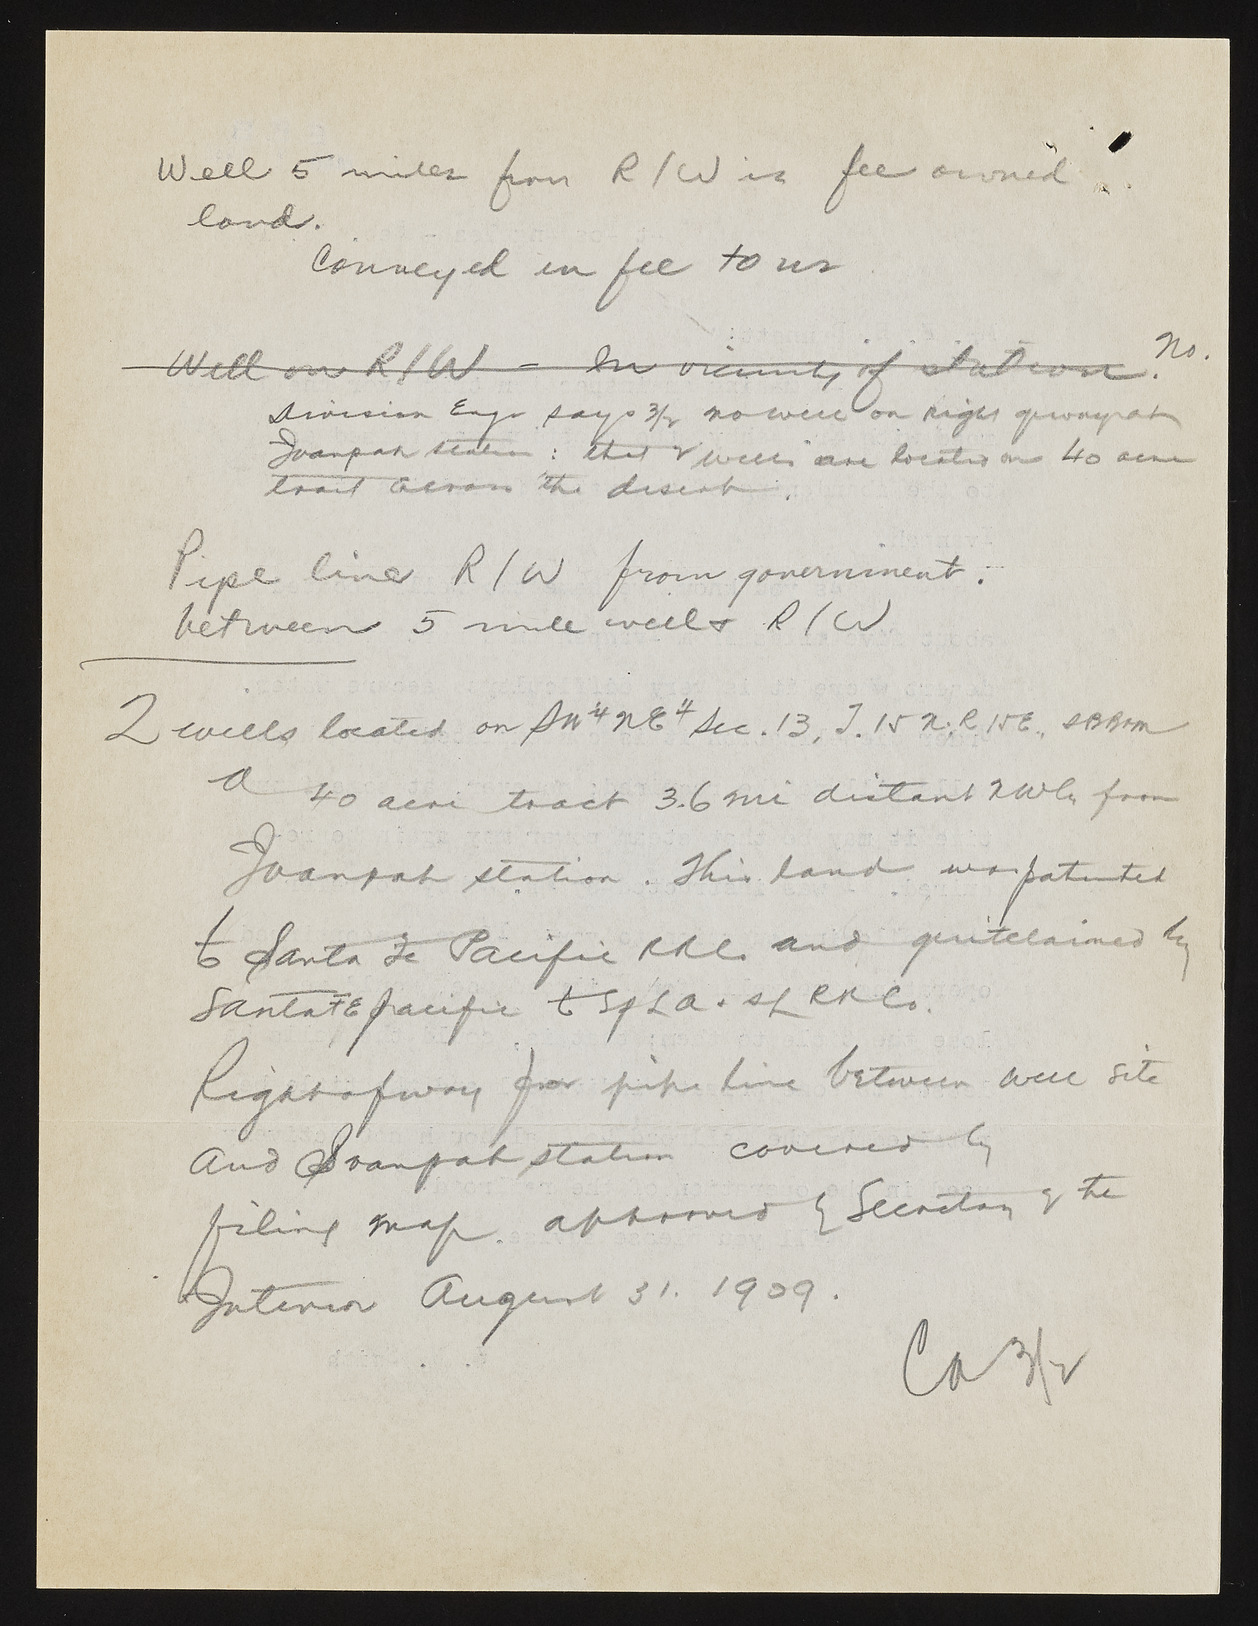 Well 5 miles from R/W is fee owned
land.
Conveyed in fee to us
Well on R/W - In vicinity of station. No.
Division Engr says 3/2 no well on right of way at
Ivanpah station: that 2 wells are located on 40 acre
tract across the desert.
Pipe line R/W from government.
between 5 mile wells R/W
2 wells located on SW4 NE4 Sec. 13, T. 15 N. R 15E., SBB&M
a 40 acre tract 3.6 mi distant NWly from
Ivanpah station. This land was patented
to Santa Fe Pacific RRCo and quitclaimed by
Santa FE pacific to SPLA & SL RR Co.
Right of way for pipe line between well site
and Ivanpah station covered by
filing map approved by Secretary of the
Interior August 31. 1909.
CA 3/2